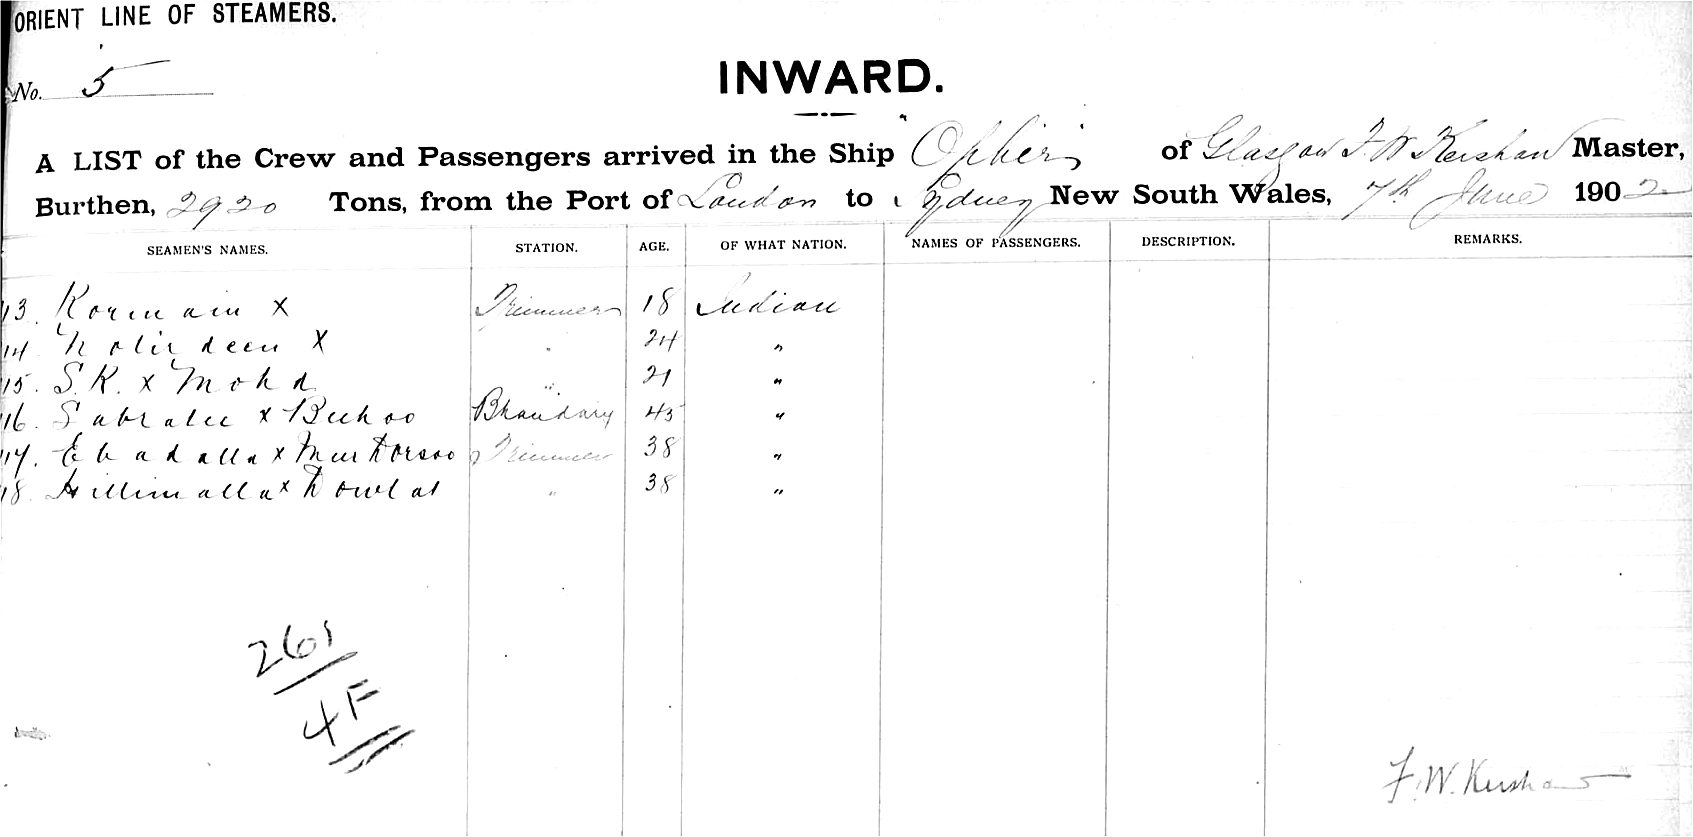 ORIENT LINE OF STEAMERS.
No. 5
INWARD.
A LIST of the Crew and Passengers arrived in the Ship Ophir of Glasgow F. W. Kershaw Master,
Burthen, 2920 Tons, from the Port of London to Sydney New South Wales, 7th June 1902
SEAMEN'S NAMES. STATION. AGE. OF WHAT NATION. NAMES OF PASSENGERS. DESCRIPTION. REMARKS.
13. Kormain x Trimmer 18 Indian
14 deen x " 24 "
15. S.K. x Mohd " 21 "
16. x Bhandary 45 "
17. Ebadalla x Trimmer 38 "
18. x Dowlat " 38 "
261
4 F
F. W. Kershaw